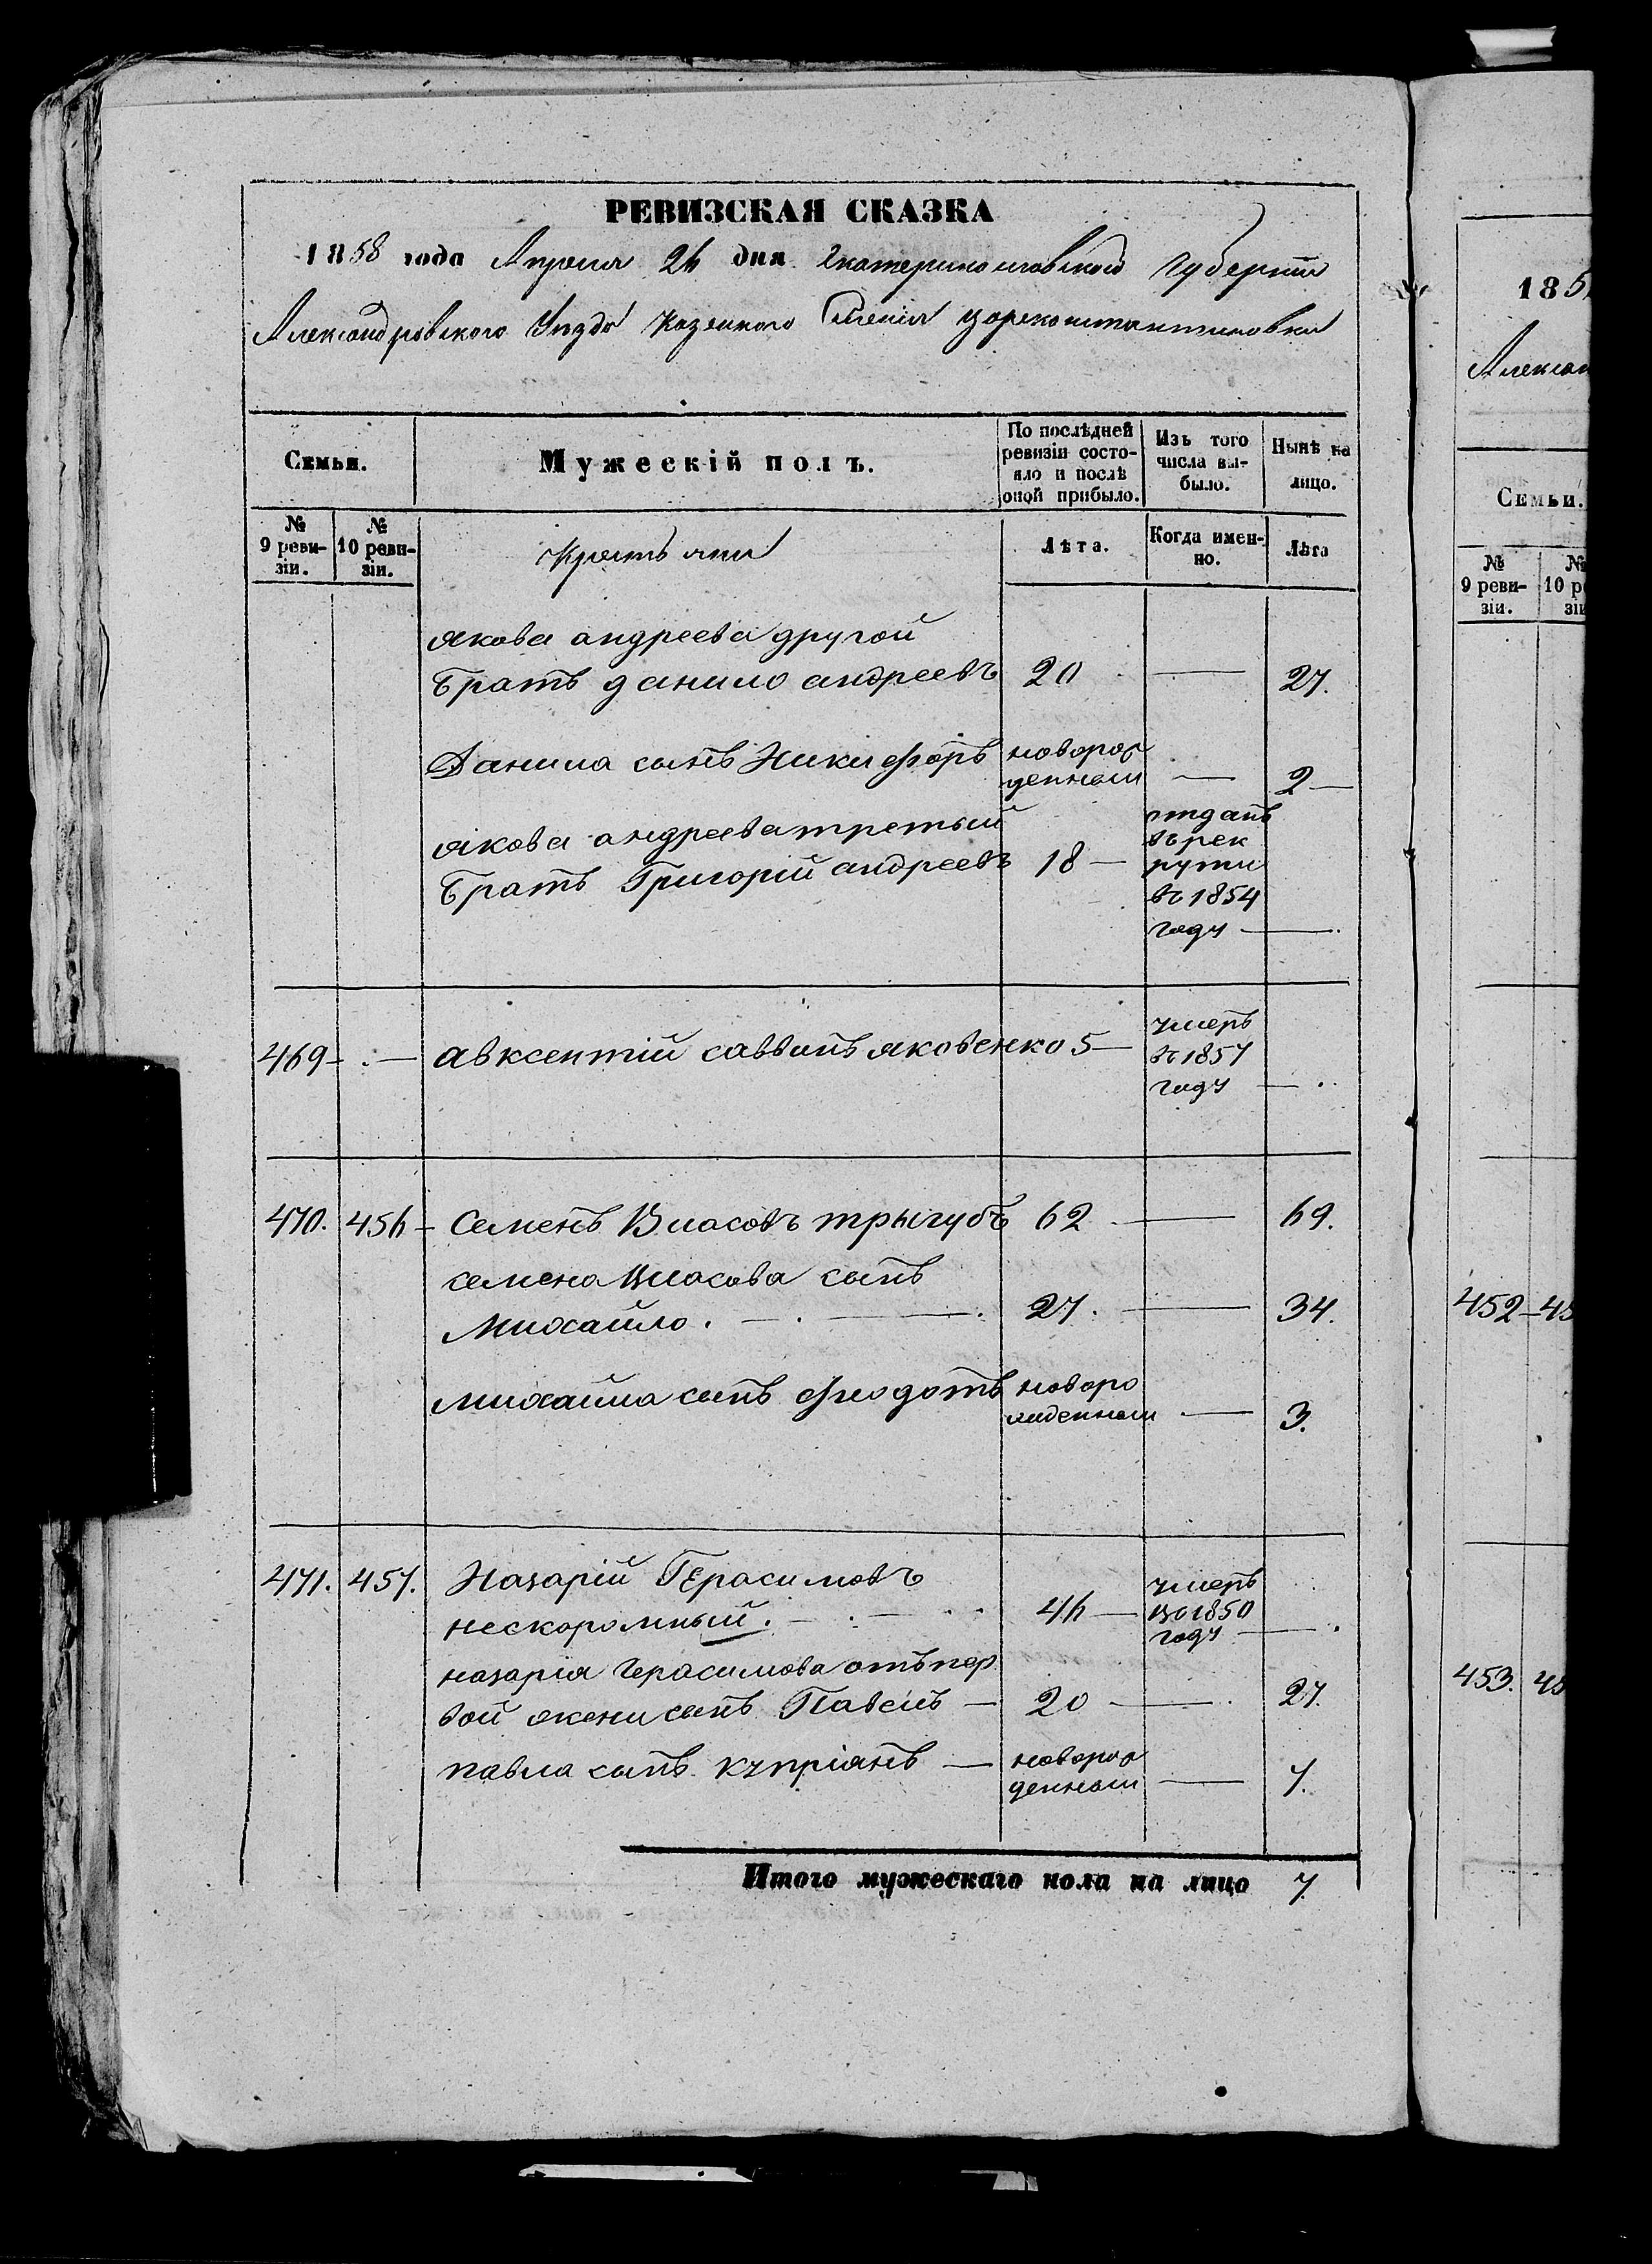 РЕВИЗСКАЯ СКАЗКА
1858 года Апреля 26 дня Екатеринославской Губернии
Александровского Уезда Казенного Селенія Цареконстантиновки
Семьи.
Мужескій полъ.
По послѣдней
ревизіи состо-
яло и послѣ
оной прибыло.
Изъ того
числа вы-
было.
Нынѣ на
лицо.
№
9 реви-
зіи.
№
10 реви-
зіи.
Крестьяне
Лѣта.
Когда имен-
но.
Лѣта
якова андреева другой
братъ данило андреевъ 20 — 27.
Данила сынъ Никифоръ
новорож
денный — 2 —
якова андреева третьий
братъ Григорій андреевъ 18 —
отданъ
въ рек
рути
въ 1854
году — .
469 - . — авксентій саввинъ яковенко 5 —
умеръ
въ 1857
году — ..
470. 456 - Семенъ Власовъ трыгубъ 62 — 69.
семена Власова сынъ
Михайло . — . — . 27. — 34.
михайла сынъ Фиодотъ
новоро
жденный — 3.
471. 457. Назарій Герасимовъ
нескоромный . — . — . . 46 —
умеръ
въ 1850
году — .
назарія Герасимова отъ пер
вой жени сынъ Павелъ — 20 — 27.
павла сынъ купріянъ —
новорож
денный — 7.
Итого мужескаго пола на лицо 7
185
Александ
Семьи.
№
9 реви-
зіи.
№
10 ре
зіи
452 - 45
453. 45